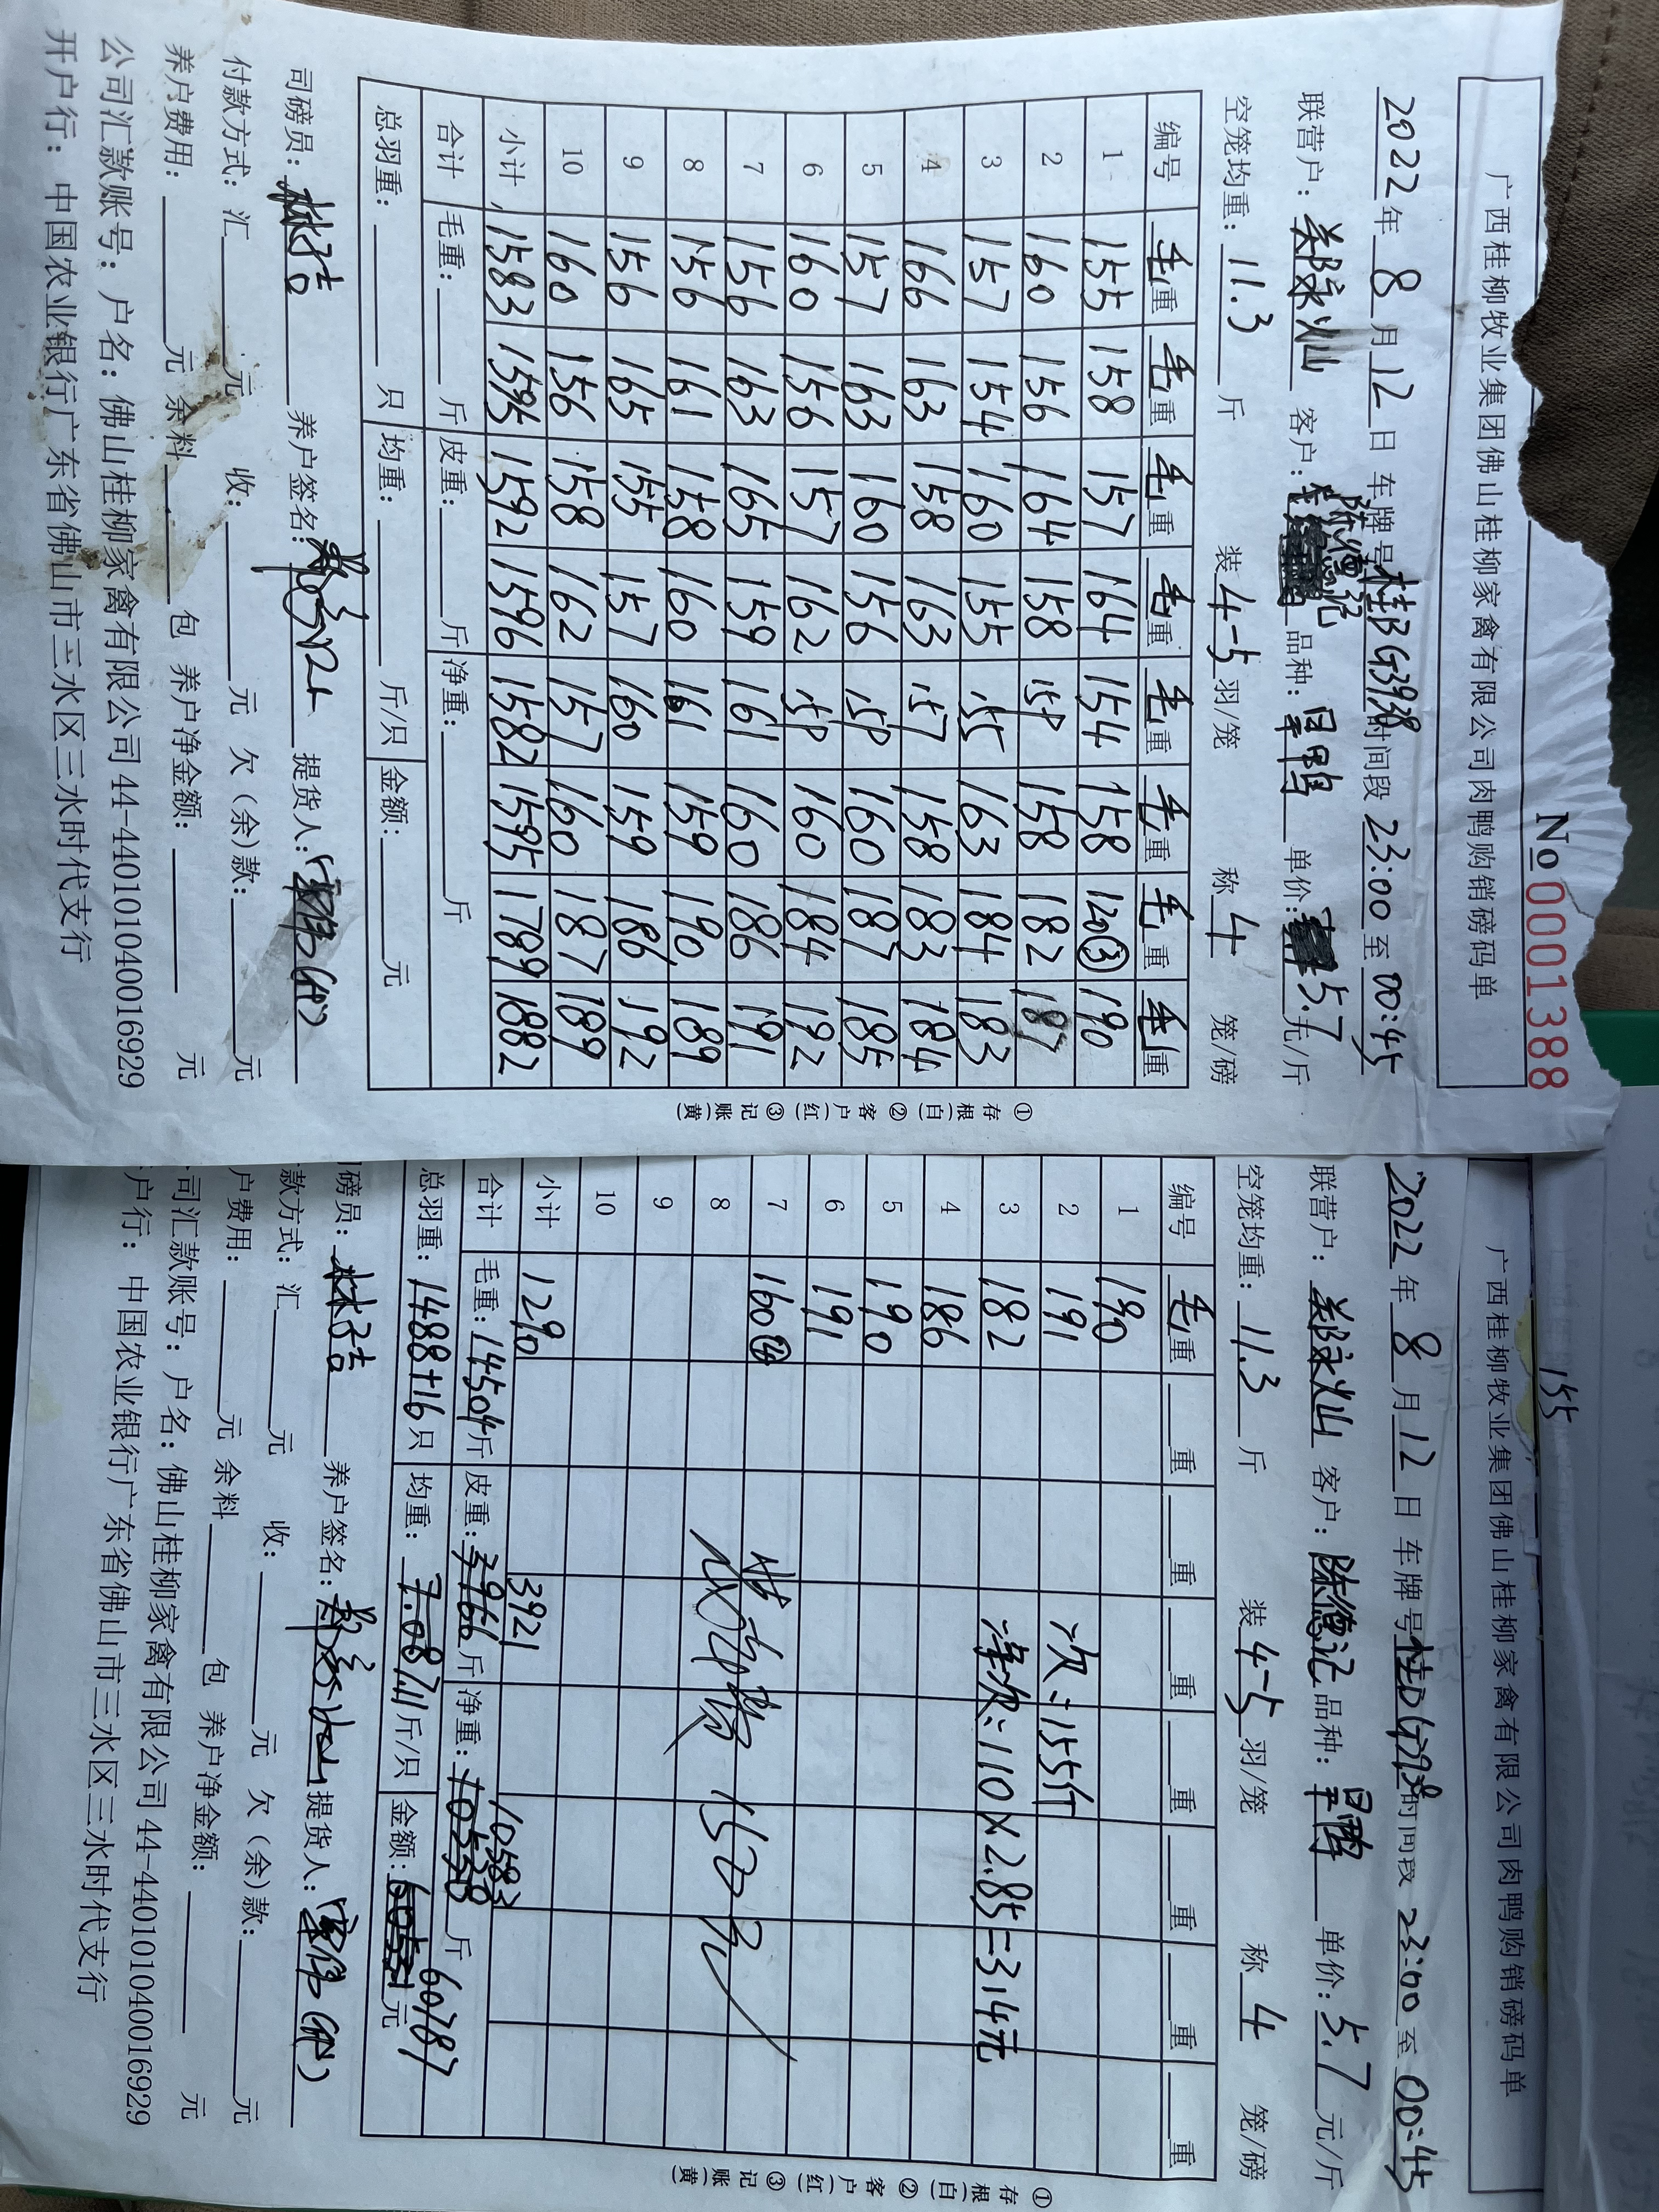 No 0001388
广西桂柳牧业集团佛山桂柳家禽有限公司肉鸭购销磅码单
2022年 8 月 12 日 车牌号 桂BG3938 时间段 23:00 至 00:45
联营户: 郑永灿 客户: 陈德记 品种: 旱鸭 单价: 5.7 元/斤
空笼均重: 11.3 斤 装 4-5 羽/笼 称 4 笼/磅
编号 毛重 毛重 毛重 毛重 毛重 毛重 毛重 毛重
1 155 158 157 164 154 158 120③ 190
2 160 156 164 158 158 158 182 187
3 157 154 160 155 155 163 184 183
4 166 163 158 163 157 158 183 184
5 157 163 160 156 158 160 187 185
6 160 156 157 162 158 160 184 192
7 156 163 165 159 161 160 186 191
8 156 161 158 160 161 159 190 189
9 156 165 155 157 160 159 186 192
10 160 156 158 162 157 160 187 189
小计 1583 1595 1592 1596 1582 1595 1789 1882
合计 毛重: 斤 皮重: 斤 净重: 斤
总羽重: 只 均重: 斤/只 金额: 元
司磅员: 林洁 养户签名: 提货人:
付款方式: 汇 元 收: 元 欠(余)款: 元
养户费用: 元 余料 包 养户净金额: 元
公司汇款账号: 户名: 佛山桂柳家禽有限公司 44-440101040016929
开户行: 中国农业银行广东省佛山市三水区三水时代支行
①存根(白) ②客户(红) ③记账(黄)
155
广西桂柳牧业集团佛山桂柳家禽有限公司肉鸭购销磅码单
2022年 8 月 12 日 车牌号 桂BG3938 时间段 23:00 至 00:45
联营户: 郑永灿 客户: 陈德记 品种: 旱鸭 单价: 5.7 元/斤
空笼均重: 11.3 斤 装 4-5 羽/笼 称 4 笼/磅
编号 毛重 重 重 重 重 重 重 重
1 190
2 191 次: 155斤
3 182 净次: 110×2.85=314元
4 186
5 190
6 191
7 160④
8 150元
9
10
小计 1290 3921 10583
合计 毛重: 14504斤 皮重: 3966 斤 净重: 10538 斤
总羽重: 1488+16 只 均重: 7.08 7.11 斤/只 金额: 60787 元
磅员: 林洁 养户签名: 提货人:
款方式: 汇 元 收: 元 欠(余)款: 元
户费用: 元 余料 包 养户净金额: 元
司汇款账号: 户名: 佛山桂柳家禽有限公司 44-440101040016929
户行: 中国农业银行广东省佛山市三水区三水时代支行
①存根(白) ②客户(红) ③记账(黄)